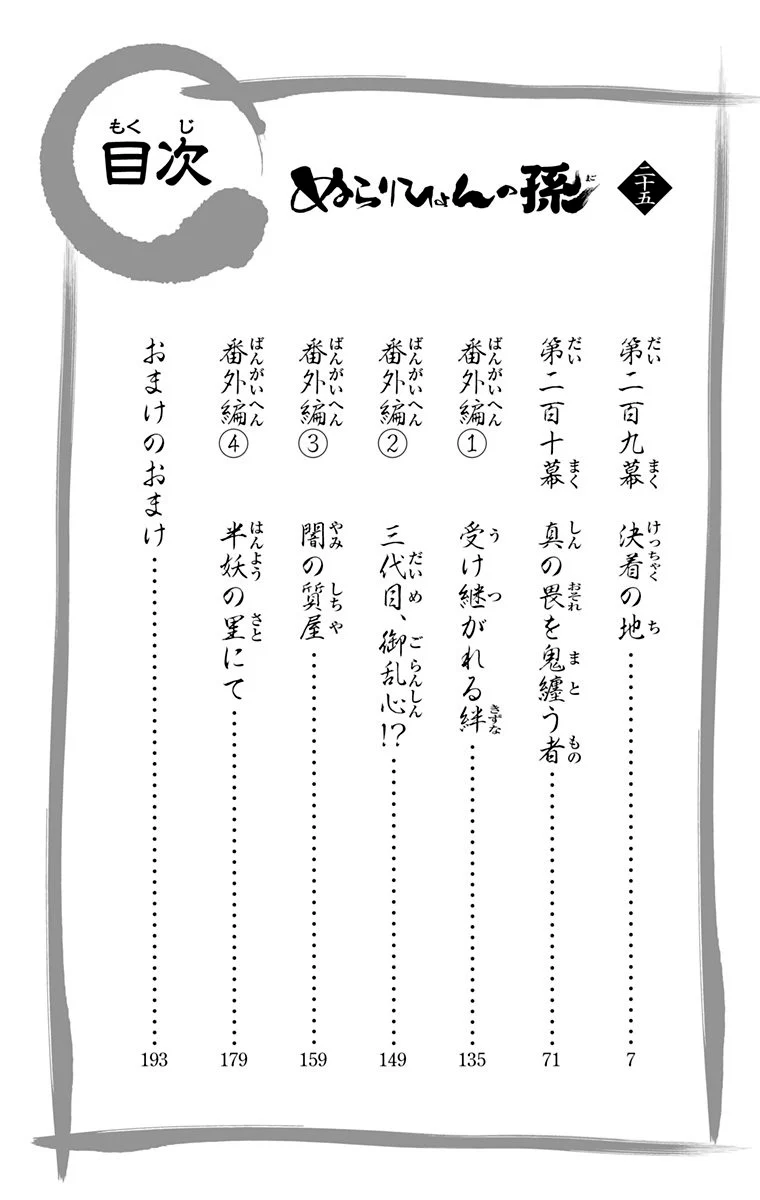 二十五
ぬらりひょんの孫
まご
もくじ
目次
第二百九幕 決着の地……7
だい まく けっちゃく ち
第二百十幕 真の畏を鬼纏う者……71
だい まく しん おそれ まと もの
番外編① 受け継がれる絆……135
ばんがいへん う つ きずな
番外編② 三代目、御乱心!?……149
ばんがいへん だいめ ごらんしん
番外編③ 闇の質屋……159
ばんがいへん やみ しちや
番外編④ 半妖の里にて……179
ばんがいへん はんよう さと
おまけのおまけ……193